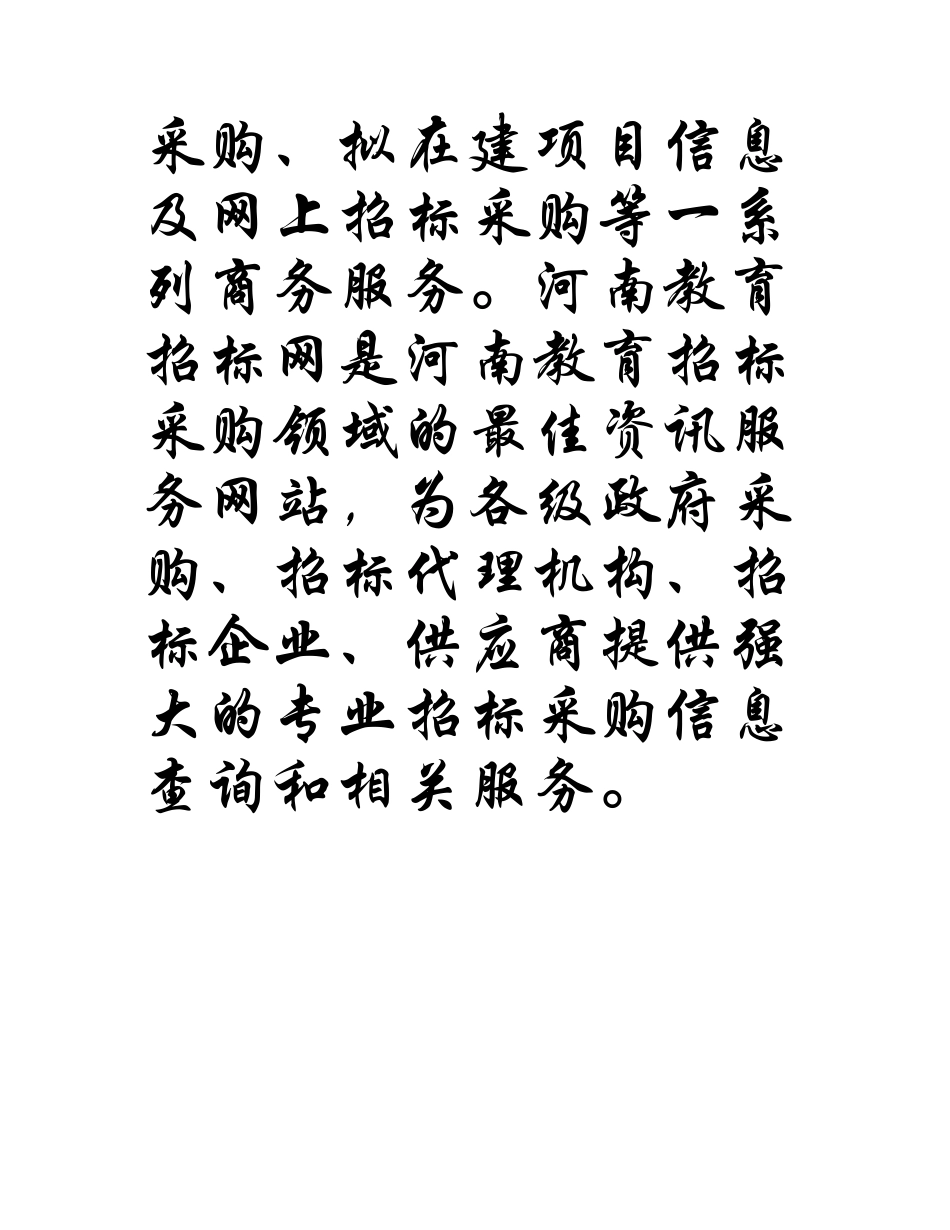 采购、拟在建项目信息
及网上招标采购等一系
列商务服务。河南教育
招标网是河南教育招标
采购领域的最佳资讯服
务网站，为各级政府采
购、招标代理机构、招
标企业、供应商提供强
大的专业招标采购信息
查询和相关服务。